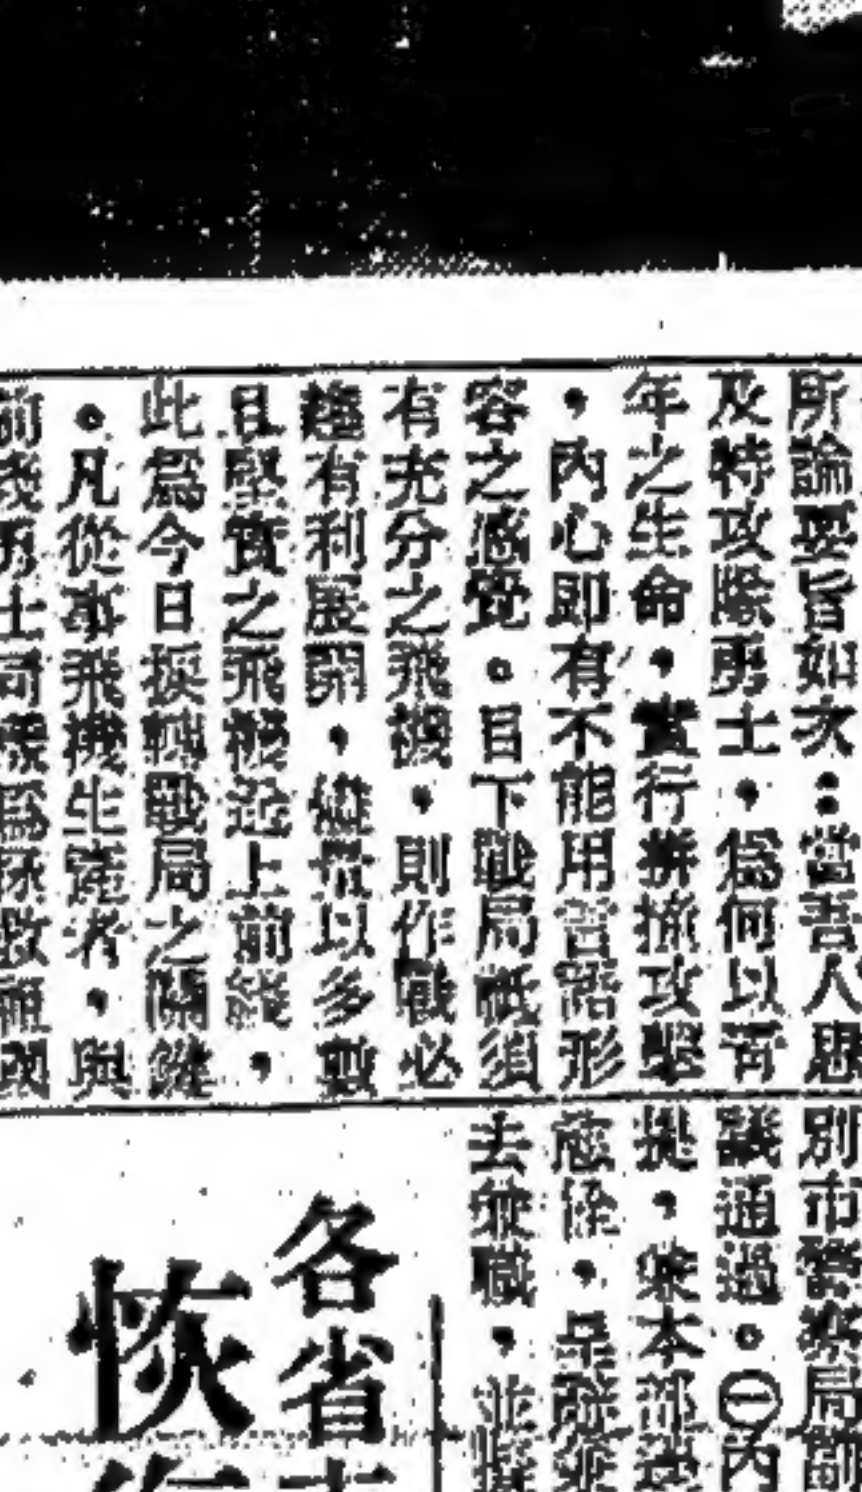 所論要旨如次：當吾人思
及特攻隊勇士，爲何以青
年之生命，實行拚撞攻擊
，內心即有不能用言語形
容之感覺。目下戰局祇須
有充分之飛機，則作戰必
趨有利展開，儘量以多數
且堅實之飛機送上前綫，
此爲今日挨轉戰局之關鍵
。凡從事飛機生產者，與
前綫勇士同樣爲拯救祖國
別市營業局副
議通過。㊀內
提，本部
，呈辭兼
去兼職，並
各省
恢